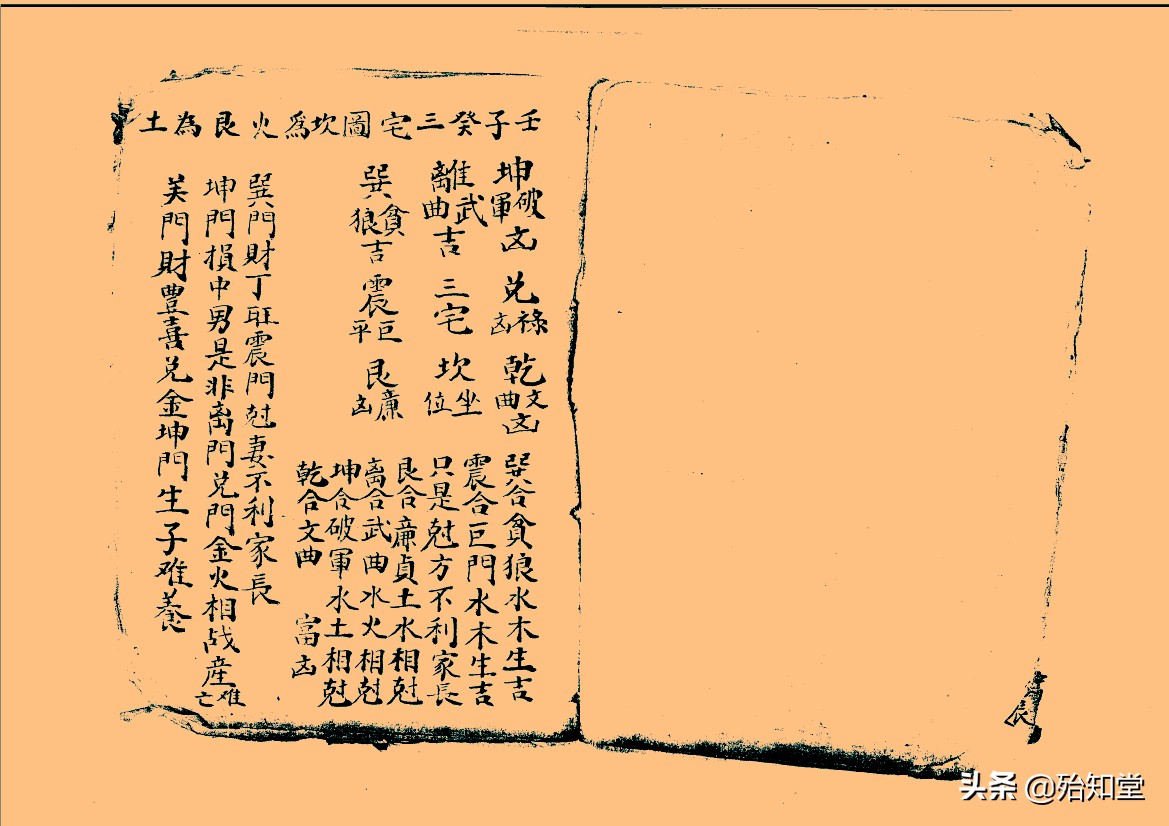 壬子癸三宅圖坎爲火艮為土
坤破軍凶
兌祿凶
乾文曲凶
離武曲吉
三宅
坎坐位
巽貪狼吉
震巨平
艮廉凶
巽合貪狼水木生吉
震合巨門水木生吉
只是尅方不利家長
艮合廉貞土水相尅
离合武曲水火相尅
坤合破軍水土相尅
乾合文曲 凶
巽門財丁旺震門尅妻不利家長
坤門損中男是非离門兌門金火相战産难亡
門財豊喜兌金坤門生子难養
头条 @殆知堂